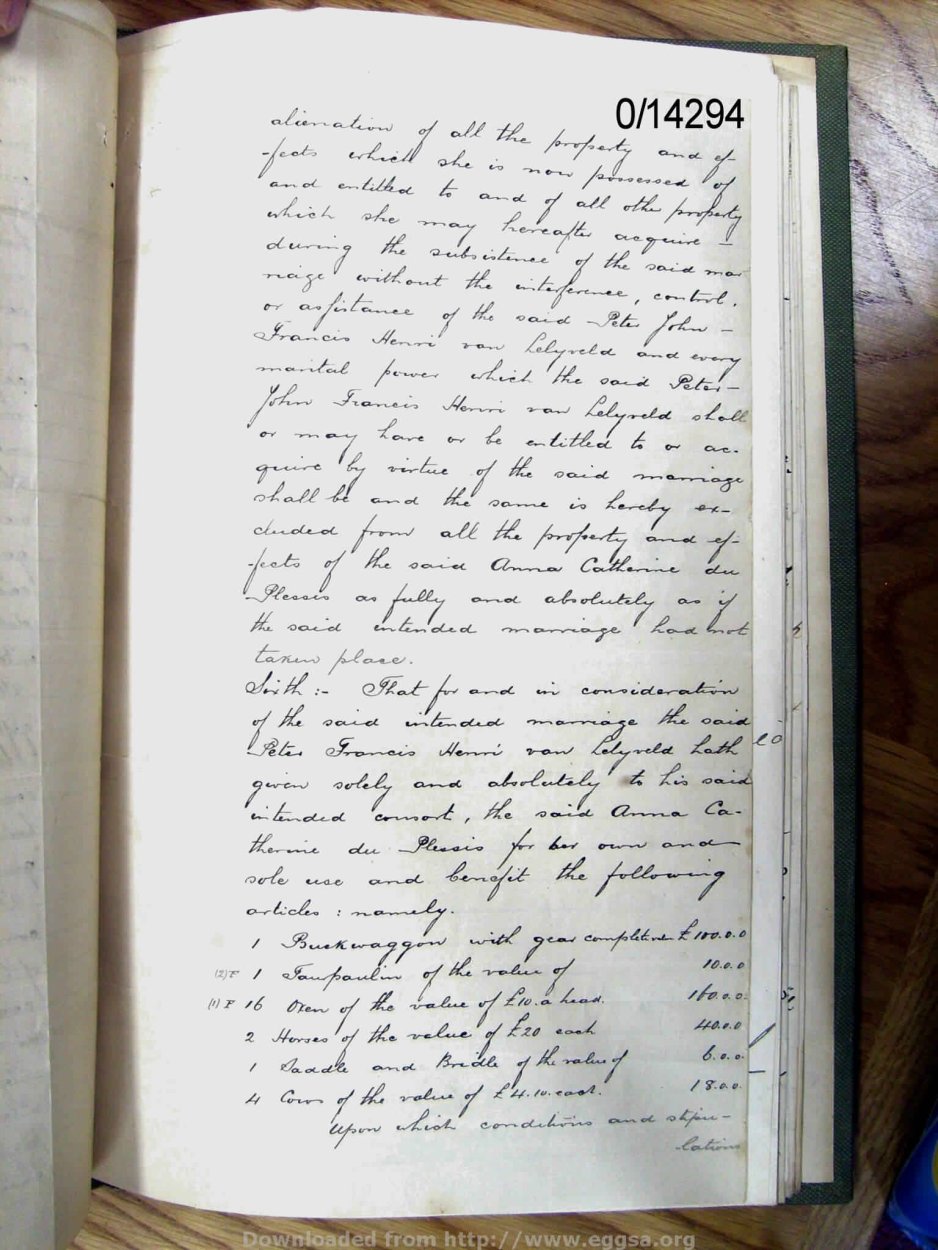 0/14294
alienation of all the property and ef-
-fects which she is now possessed of
and entitled to and of all othe property
which she may hereafter acquire -
during the subsistence of the said mar
riage without the interference, control,
or assistance of the said Peter John -
Francis Henri van Lelyveld and every
marital power which the said Peter -
John Francis Henri van Lelyveld shall
or may have or be entitled to or ac-
quire by virtue of the said marriage
shall be and the same is hereby ex-
cluded from all the property and ef-
-fects of the said Anna Catherine du
Plessis as fully and absolutely as if
the said intended marriage had not
taken place.
Sixth :- That for and in consideration
of the said intended marriage the said
Peter Francis Henri van Lelyveld hath
given solely and absolutely to his said
intended consort, the said Anna Ca-
therine du Plessis for her own and
sole use and benefit the following
articles : namely.
1 Buckwaggon with gear complete £ 100.0.0
(2) F 1 Taurpaulin of the value of 10.0.0
(1) F 16 Oxen of the value of £10. a head. 160.0.0
2 Horses of the value of £20 each 40.0.0
1 Saddle and Bridle of the value of 6.0.0
4 Cows of the value of £4.10. each. 18.0.0
Upon which conditions and stipu-
lations
Downloaded from http://www.eggsa.org